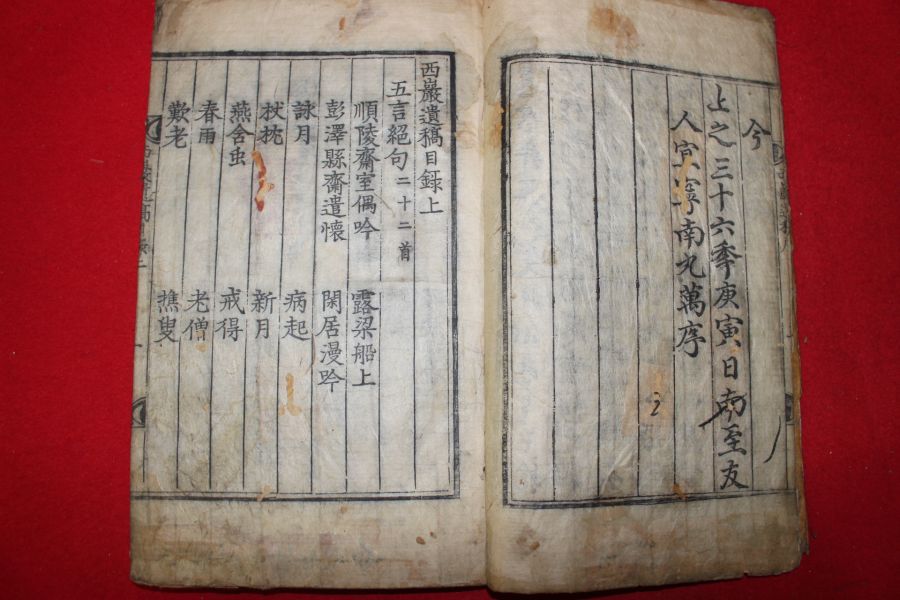 今
上之三十六季庚寅日南至友
人宜寧南九萬序
西巖遺稿目錄上
五言絕句二十二首
順陵齋室偶吟 露梁船上
彭澤縣齋遣懷 閑居漫吟
詠月 病起
杖枕 新月
燕含虫 戒得
春雨 老僧
歎老 樵叟